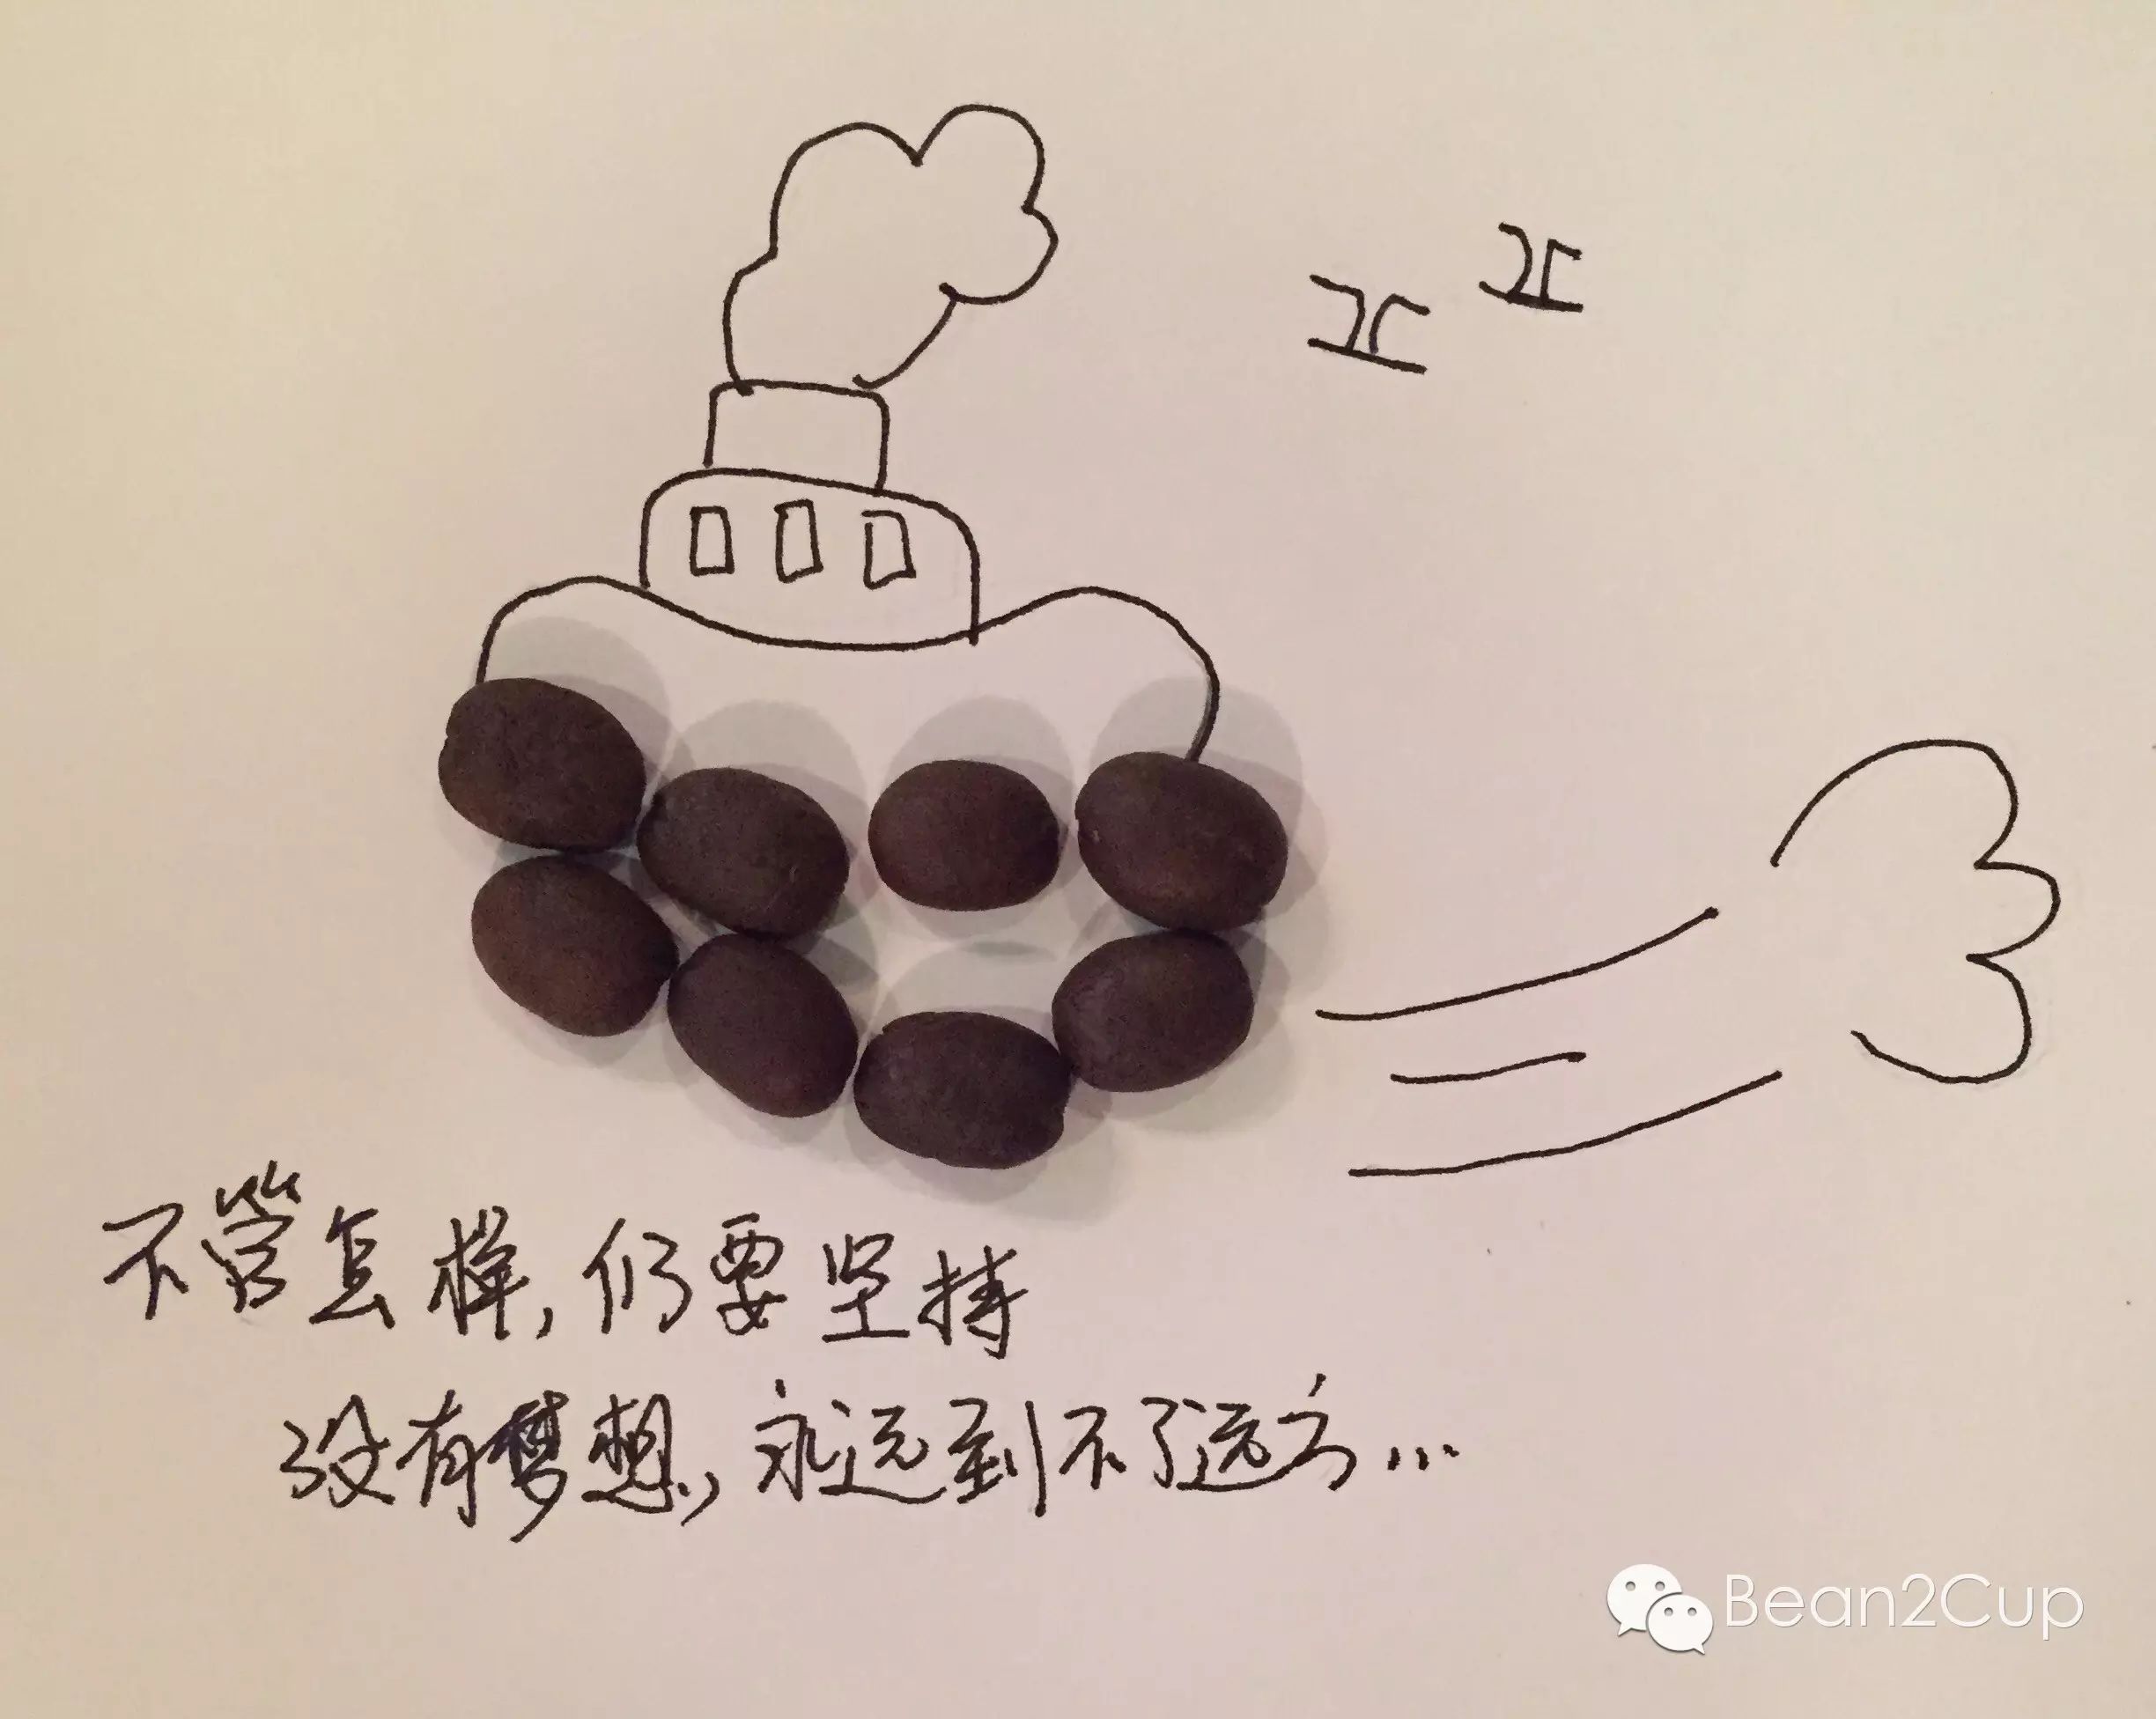 不管怎样，仍要坚持
没有梦想，永远到不了远方...
Bean2Cup